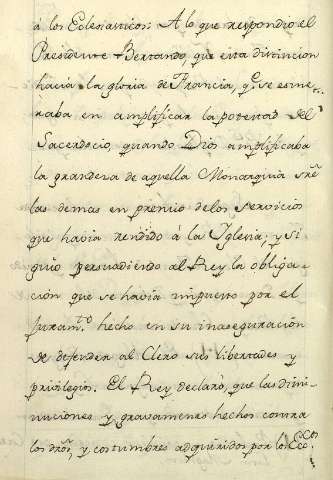 à los Eclesiasticos: A lo que respondio el
Presidente Bertando, que esta distincion
hacia la gloria de Francia, q.e se esme-
raba en amplificar la potestad del
Sacerdocio, quando Dios amplificaba
la grandeza de aquella Monarquia sre
las demas en premio delos servicios
que havia rendido à la Iglesia; y si-
guió persuadiendo al Rey la obliga-
ción que se havia impuesto por el
juram.to hecho en su inauguración
de defender al Clero sus libertades y
privilegios. El Rey declaró, que las dimi-
nuciones y gravamenes hechos contra
los dros, y costumbres adquiridos por los Ecc.cos